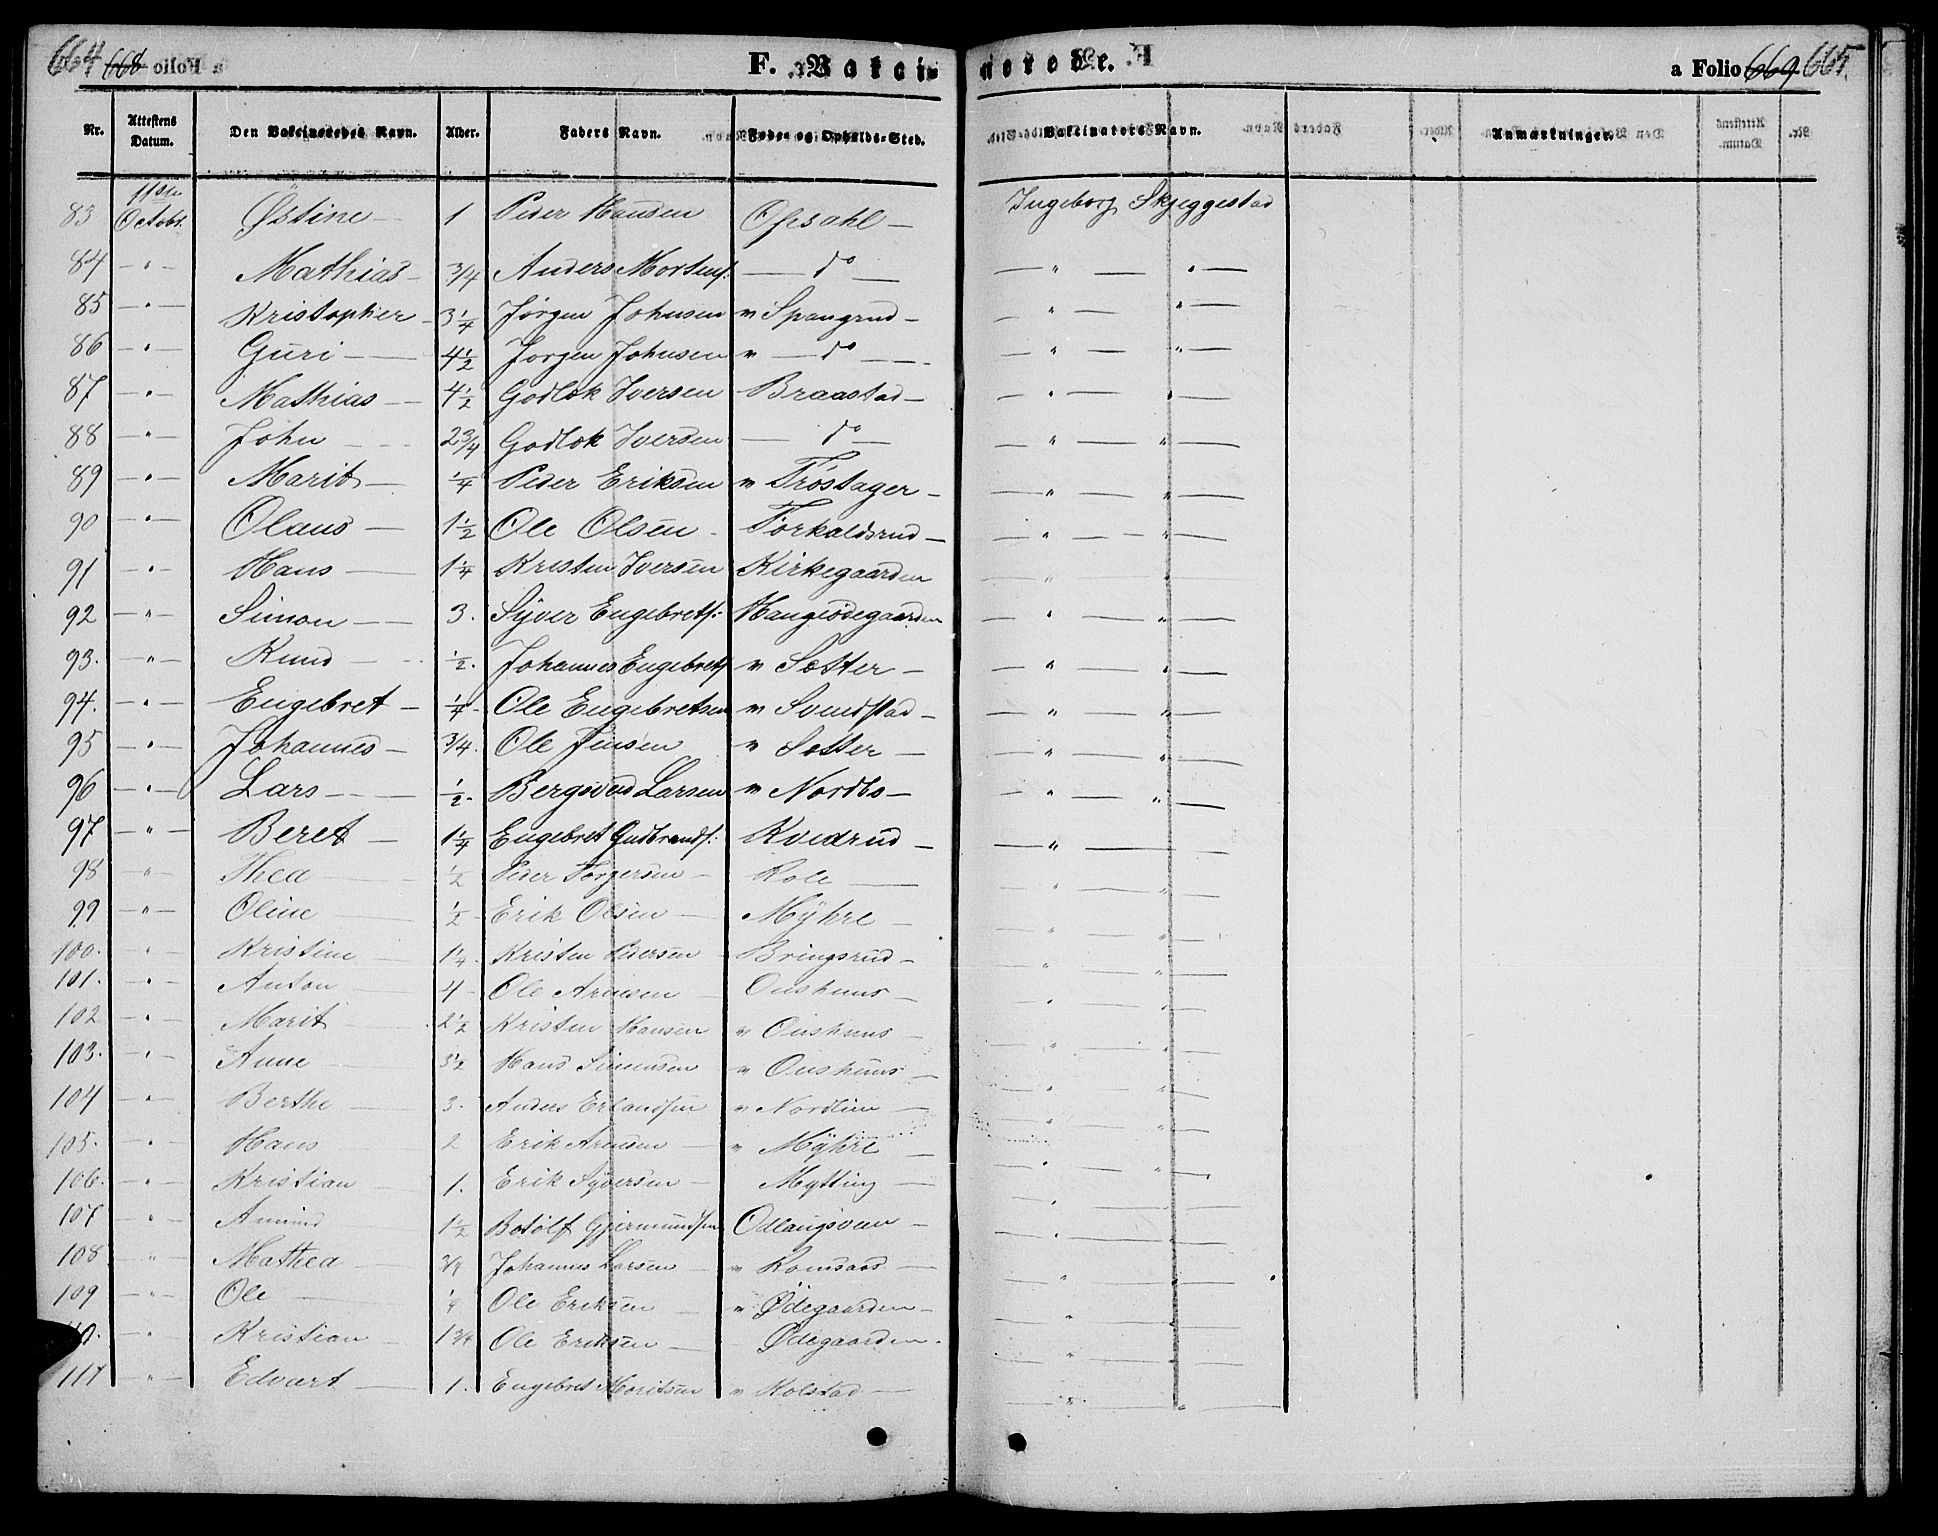 664 668 F. Vakcinerede. a Folio 669 665.
Nr. Attestens Datum. Den Vakcineredes Navn. Alder. Faders Navn. Føde- og Opholds-Sted. Vakcinators Navn. Anmærkninger.
83 11te Octobr. Østine — 1 Peder Hansen Opsahl — Ingeborg Skjeggestad
84 — " — Mathias — 3/4 Anders Mortens: — do — — " — " —
85 — " — Kristopher — 3 1/4 Jørgen Johnsen " Spangrud — — " — " —
86 — " — Guri — 4 1/2 Jørgen Johnsen " — do — — " — " —
87 — " — Mathias — 4 1/2 Godlok Iversen Braastad — — " — " —
88 — " — John — 2 3/4 Godlok Iversen — do — — " — " —
89 — " — Marit — 1/4 Peder Eriksen " Trøstager — — " — " —
90 — " — Olaus — 1 1/2 Ole Olsen - Torkaldsrud — — " — " —
91 — " — Hans — 1 1/4 Kristen Iversen Kirkegaarden — " — " —
92 — " — Simon — 3. Syver Engebrets: Haugsødegaarden — " — " —
93. — " — Knud — 1/2. Johannes Engebrets " Sætter — — " — " —
94. — " — Engebret — 1/4 - Ole Engebretsen " Svendstad — — " — " —
95 — " — Johannes — 3/4. Ole Jensen " Sætter — — " — " —
96 — " — Lars — 1/2. Bergsvend Larsen " Nordbs — — " — " —
97 — " — Beret — 1 1/4 Engebret Gudbrands: Kvedrud — — " —
98 — " — Thea — 1/2 Peder Torgersen — Role — — " — " —
99 — " — Oline — 1/2 Erik Olsen — Myhre — — " — " —
100. " Kristine — 1 1/4 Kristen Pedersen — Bringsrud — — " — " —
101. — " — Anton — 4 Ole Arnesen — Onshuus — — " — " —
102 — " — Marit — 2 1/2 Kristen Hansen " Onshuus — — " — " —
103. — " — Anne — 3 1/2 Hans Simensen " Onshuus — — " — " —
104 — " — Berthe — 3. Anders Erlandsen " Nordlien — — " — " —
105. — " — Hans 2 Erik Arnesen — " Myhre — — " — " —
106. — " — Kristian — 1. Erik Syversen — Mytting — — " —
107 — " — Amund 1 1/2 Botolf Gjermundsen Odlaugsveen — — " —
108 — " — Mathea — 3/4 Johannes Larsen — " Romsaas — — " —
109 — " — Ole — 1/4 Ole Eriksen — " Ødegaarden — — " —
110. — " — Kristian — 1 3/4 Ole Eriksen — Ødegaarden. — " —
111 — " — Edvart — 1. Engebret Moritsen " Kolstad — — " — " —